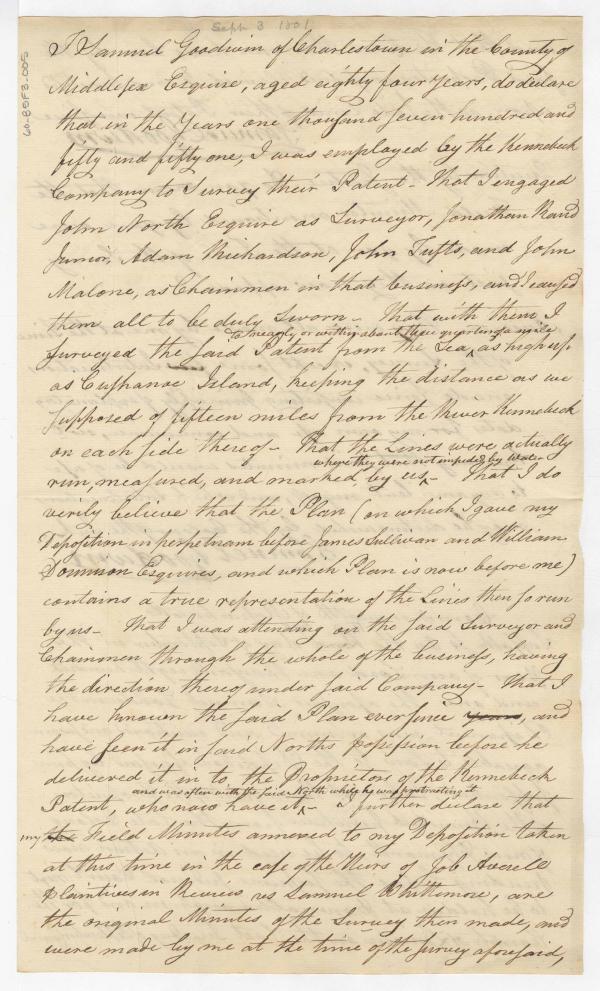 Sept. 3 1801
60-8SF3-005
I Samuel Goodwin of Charlestown in the County of
Middlesex Esquire, aged eighty four years, do declare
that in the Years one thousand seven hundred and
fifty and fifty one, I was employed by the Kennebeck
Company to Survey their Patent - That I engaged
John North Esquire as Surveyor, Jonathan Rand
Junior, Adam Richardson, John Tufts, and John
Malone, as Chainmen in that business, and I caused
them all to be duly Sworn - That with them I
to Meagly, or within about three quarters of a mile
surveyed the said Patent from the Sea ^ as high up
as Cushanoc Island, keeping the distance as we
supposed of fifteen miles from the River Kennebeck
on each side thereof - That the Lines were actually
where they were not impeded by Water
run, measured, and marked, by us ^ - That I do
verily believe that the Plan (on which I gave my
Deposition in perpetuam before James Sullivan and William
Donnison Esquires, and which Plan is now before me)
contains a true representation of the Lines then so run
by us - That I was attending on the said Surveyor and
Chainmen through the whole of the business, having
the direction thereof under said Company - That I
have known the said Plan ever since years, and
have seen it in said Norths possession before he
delivered it in to the Proprietors of the Kennebeck
and was often with the said North while he was protracting it
Patent, who now have it ^ - I further declare that
my the Field Minutes annexed to my Deposition taken
at this time in the case of the Heirs of Job Averell
Plaintives in Review vs Samuel Whittemore, are
the original Minutes of the Survey then made, and
were made by me at the time of the Survey aforesaid,